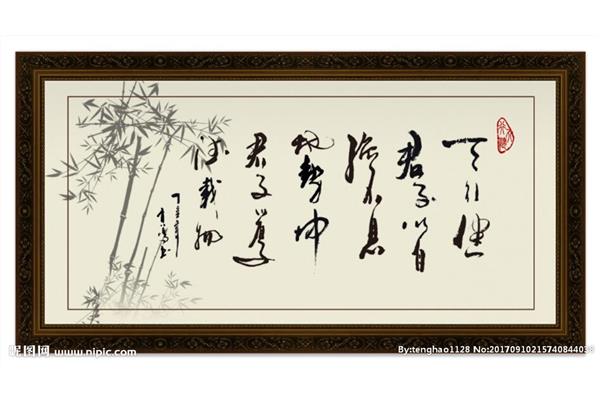 天行健
君子以自
强不息
地势坤
君子以厚
德载物
昵图网 www.nipic.com
By:tenghao1128 No:20170910215740844038